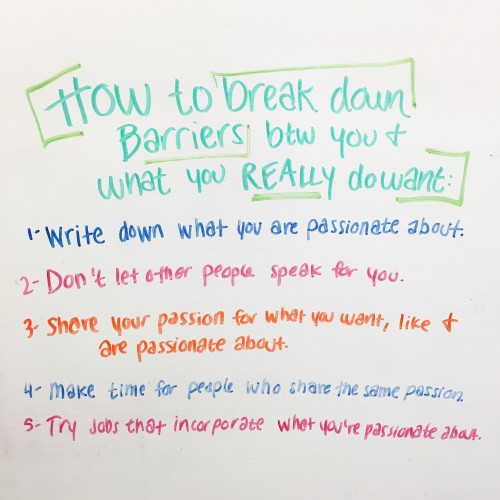 How to break down
Barriers btw you +
what you REALLY do want:
1- Write down what you are passionate about.
2- Don't let other people speak for you.
3- Share your passion for what you want, like +
are passionate about.
4- Make time for people who share the same passion.
5- Try Jobs that incorporate what you're passionate about.